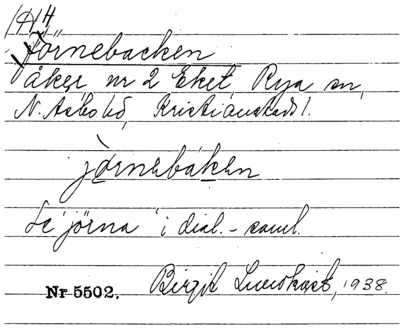 Jörnebacken
åker nr 2 Eket, Rya sn,
N. Åsbo hd, Kristianstads l.
jörnebáken
Se 'jörna' i dial.-saml.
Nr 5502. Birgit Lundkvist, 1938.